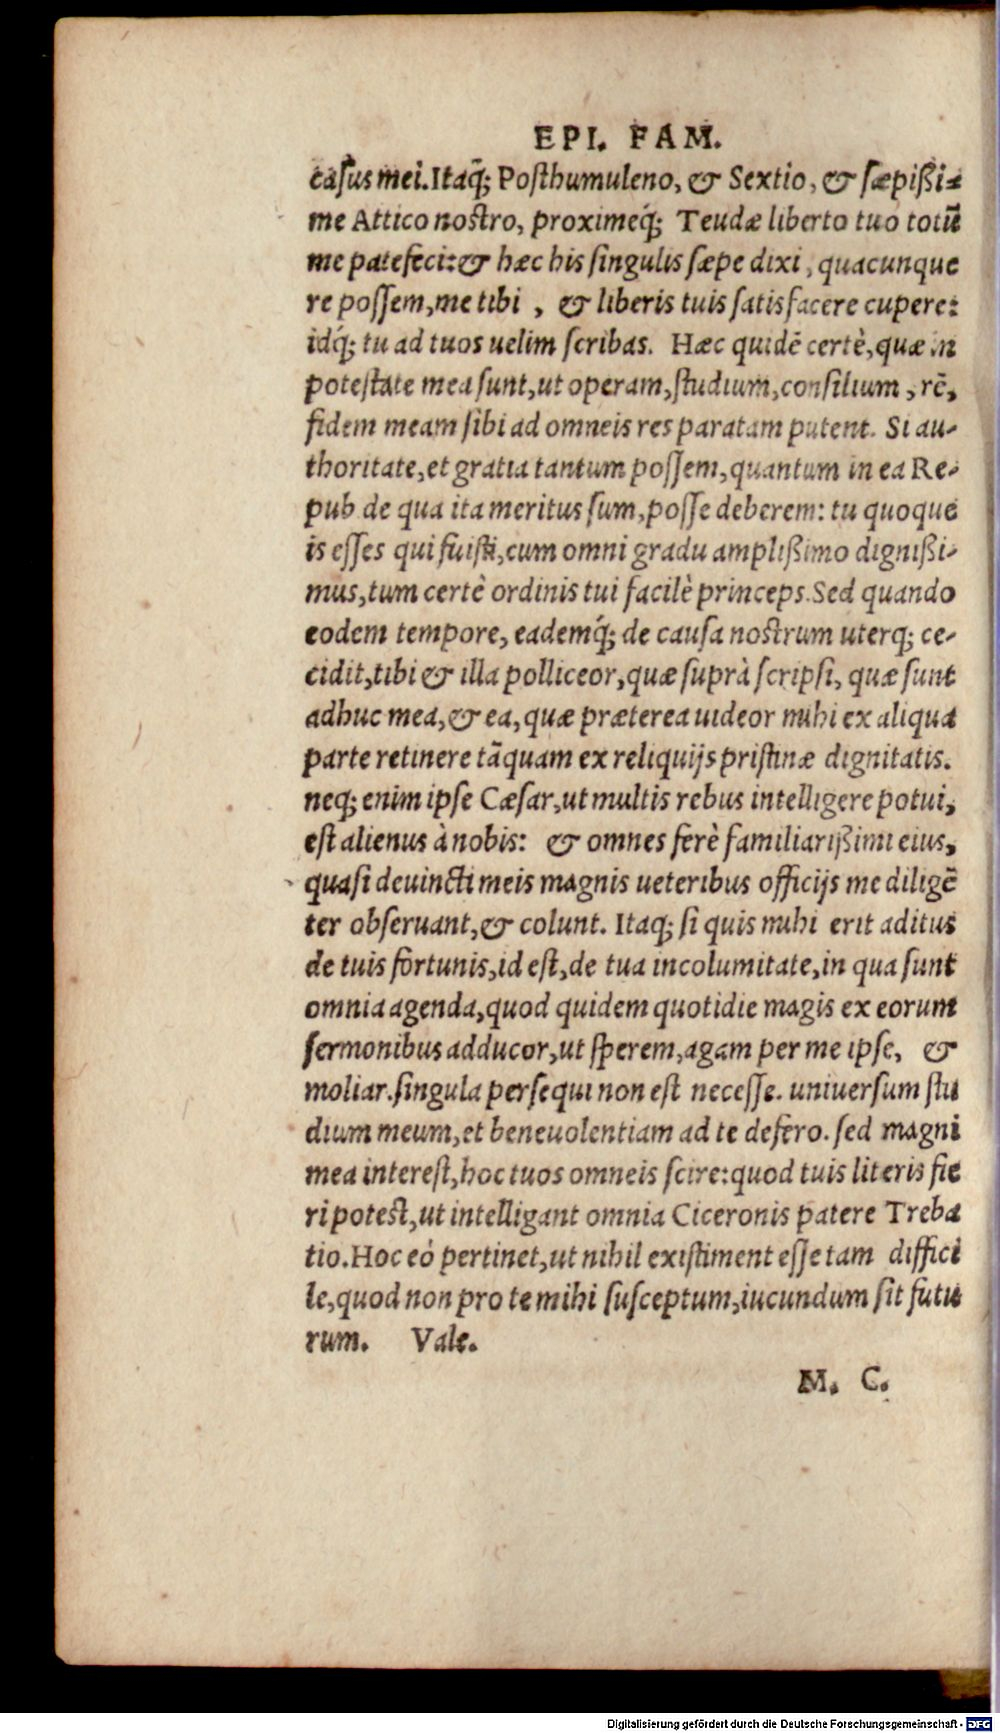 EPI. FAM.
casus mei. Itaq̃; Posthumuleno, & Sextio, & sæpißi-
me Attico nostro, proximeq́; Teudæ liberto tuo totũ
me patefeci: & hæc his singulis sæpe dixi, quacunque
re possem, me tibi, & liberis tuis satisfacere cupere:
idq́; tu ad tuos uelim scribas. Hæc quidẽ certè, quæ in
potestate mea sunt, ut operam, studium, consilium, rẽ,
fidem meam sibi ad omneis res paratam putent. Si au-
thoritate, et gratia tantum possem, quantum in ea Re-
pub de qua ita meritus sum, posse deberem: tu quoque
is esses qui fuisti, cum omni gradu amplißimo dignißi-
mus, tum certè ordinis tui facilè princeps. Sed quando
eodem tempore, eademq́; de causa nostrum uterq; ce-
cidit, tibi & illa polliceor, quæ suprà scripsi, quæ sunt
adhuc mea, & ea, quæ præterea uideor mihi ex aliqua
parte retinere tãquam ex reliquijs pristinæ dignitatis.
neq; enim ipse Cæsar, ut multis rebus intelligere potui,
est alienus à nobis: & omnes ferè familiarißimi eius,
quasi deuincti meis magnis ueteribus officijs me diligẽ
ter obseruant, & colunt. Itaq; si quis mihi erit aditus
de tuis fortunis, id est, de tua incolumitate, in qua sunt
omnia agenda, quod quidem quotidie magis ex eorum
sermonibus adducor, ut sperem, agam per me ipse, &
moliar. singula persequi non est necesse. uniuersum stu
dium meum, et beneuolentiam ad te defero. sed magni
mea interest, hoc tuos omneis scire: quod tuis literis fie
ri potest, ut intelligant omnia Ciceronis patere Treba
tio. Hoc eò pertinet, ut nihil existiment esse tam diffici
le, quod non pro te mihi susceptum, iucundum sit futu
rum. Vale.
M. C.
Digitalisierung gefördert durch die Deutsche Forschungsgemeinschaft - DFG